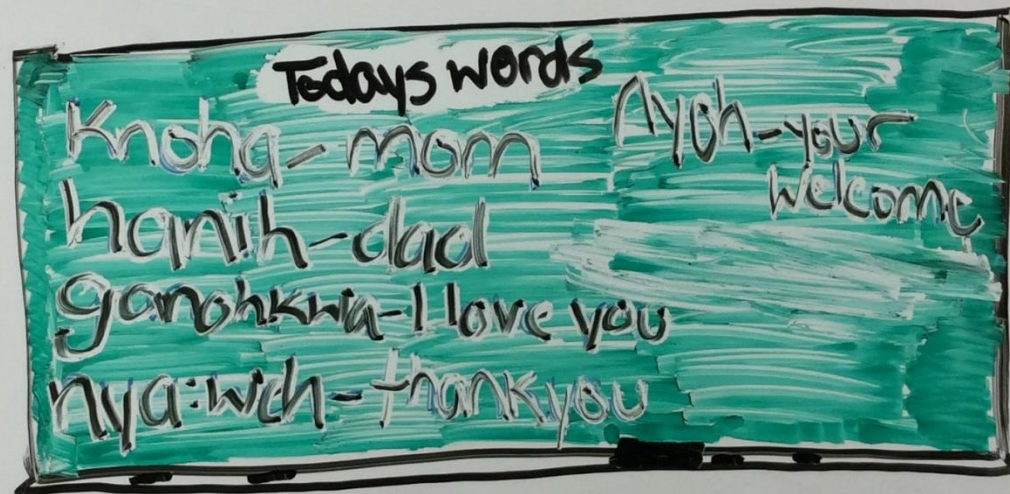 Todays words
Knoha - mom
hanih - dad
ganohkwa - I love you
nya:wch - thank you
Ayoh - your
welcome